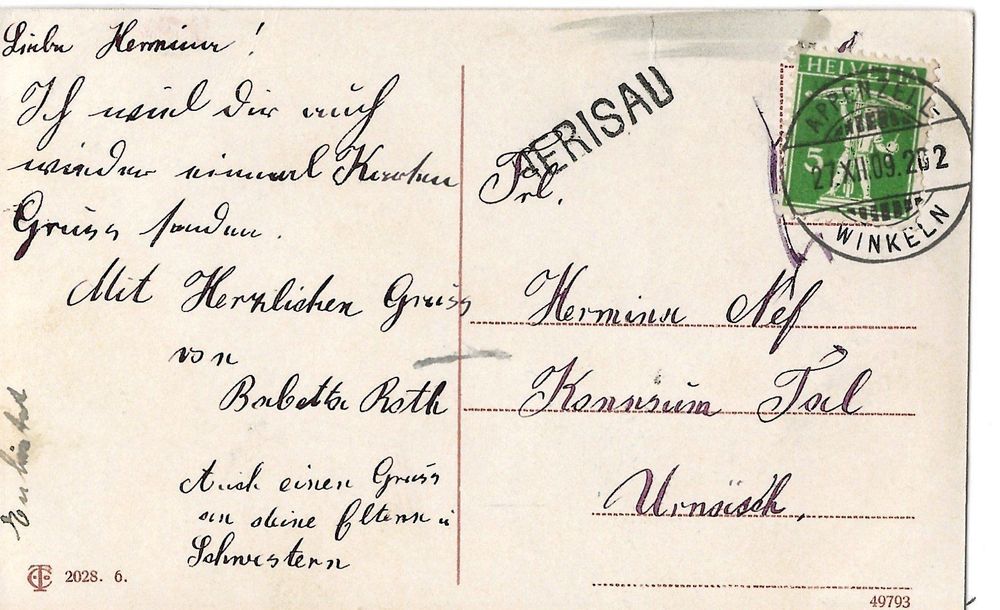 Liebe Hermine!
Ich will dir auch
wieder einmal Karten
Gruss senden.
Mit Herzlichen Gruss
von
Babetta Roth
Auch einen Gruss
an deine Eltern u
Schwestern
2028. 6.
HERISAU
HELVETIA
5
APPENZELL-
27.XII.09.20 2
WINKELN
Frl.
Hermina Nef
Konnsum Tal
Urnäsch.
49793